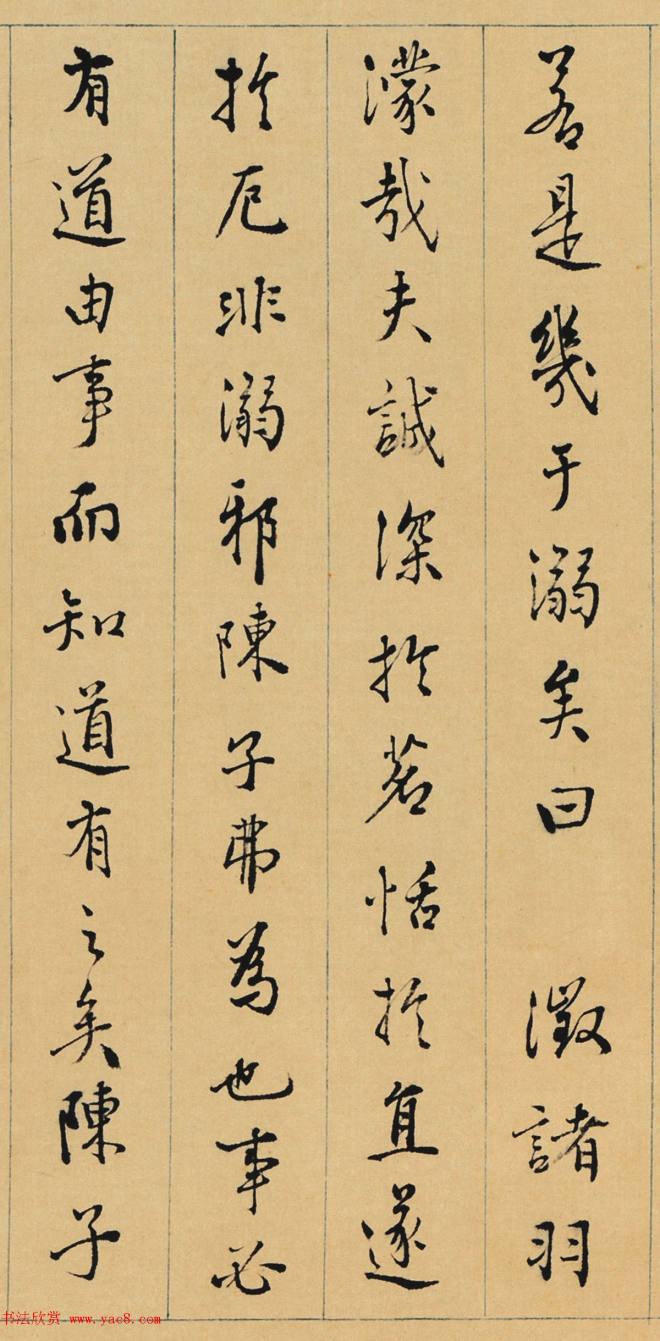 若是幾于溺矣曰 徵諸羽
濛哉夫誠深於茗恬於直遂
於厄非溺邪陳子弗為也事必
有道由事而知道有之矣陳子
书法欣赏 www.yac8.com